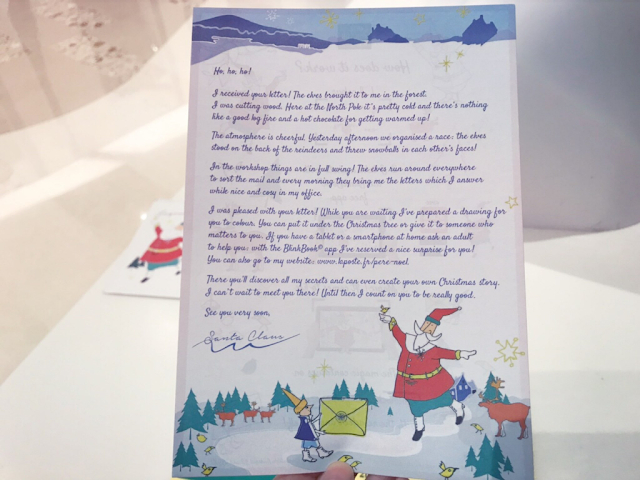 Ho, ho, ho!
I received your letter! The elves brought it to me in the forest.
I was cutting wood. Here at the North Pole it's pretty cold and there's nothing
like a good log fire and a hot chocolate for getting warmed up!
The atmosphere is cheerful. Yesterday afternoon we organised a race: the elves
stood on the back of the reindeers and threw snowballs in each other's faces!
In the workshop things are in full swing! The elves run around everywhere
to sort the mail and every morning they bring me the letters which I answer
while nice and cosy in my office.
I was pleased with your letter! While you are waiting I've prepared a drawing for
you to colour. You can put it under the Christmas tree or give it to someone who
matters to you. If you have a tablet or a smartphone at home ask an adult
to help you: with the BlinkBook® app I've reserved a nice surprise for you!
You can also go to my website: www.laposte.fr/pere-noel.
There you'll discover all my secrets and can even create your own Christmas story.
I can't wait to meet you there! Until then I count on you to be really good.
See you very soon,
Santa Claus